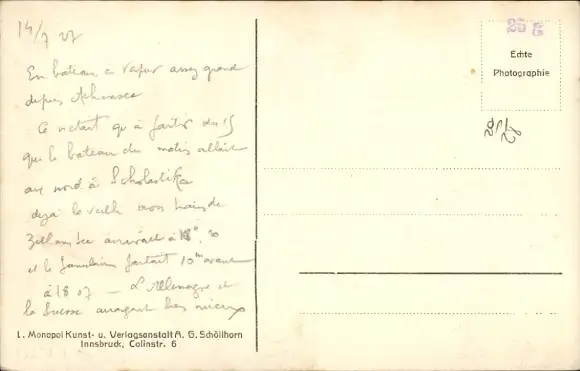 14/7 27
En bateau à vapeur assez grand
depuis
Ce n'était qu'à partir du 15
que le bateau du matin allait
au nord à Scholastika
déjà la veille mon train de
Zell am See arrivait à 18h 20
et le funiculaire partait 10m avant
à 18 07 — L'Allemagne et
la Suisse arrangent bien mieux
L. Monopol Kunst- u. Verlagsanstalt A. G. Schöllhorn
Innsbruck, Colinstr. 6
25 G
Echte
Photographie